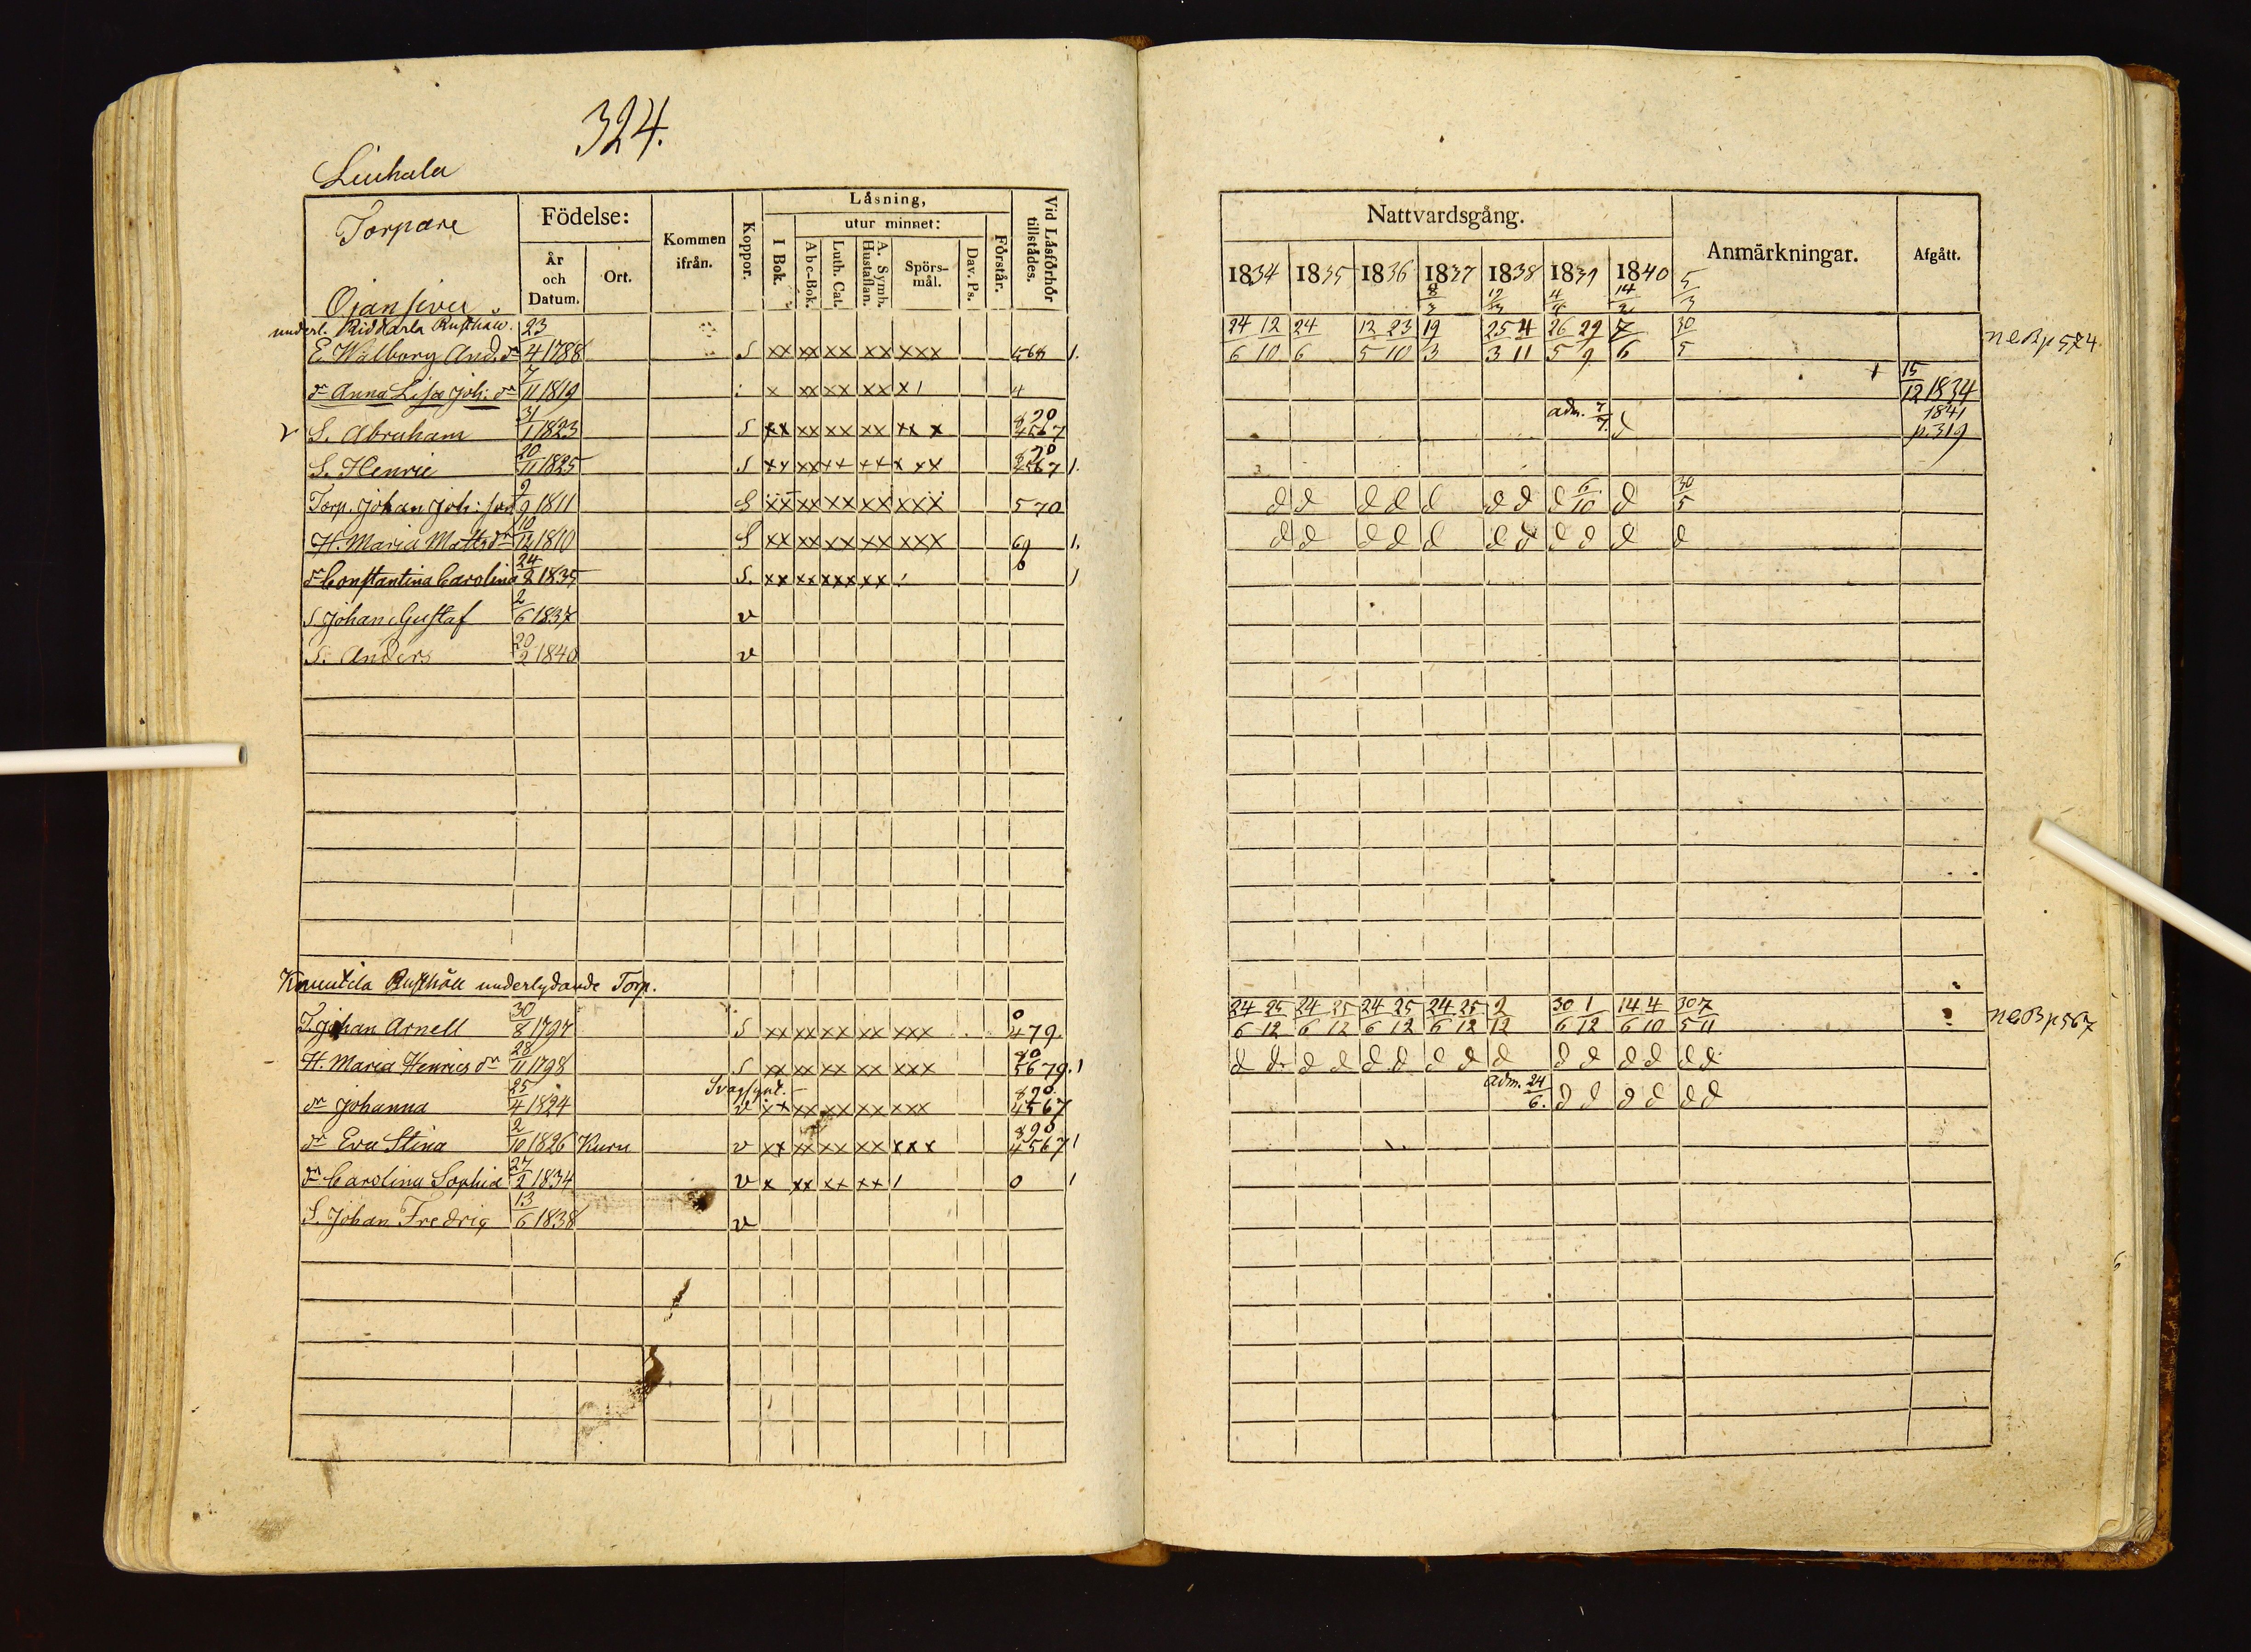 324.
Liuhala
Torpare
Ojansivu
Födelse:
År och Datum.
Ort.
Kommen ifrån.
Koppor.
Läsning,
I Bok.
utur minnet:
Abc-Bok.
Luth. Cat.
A. Symb. Hustaflan.
Spörs-mål.
Dav. Ps.
Förstår.
Vid Läsförhör tillstädes.
underl. Riddarla Rusthåll.
E. Walborg And. dr 23/4 1788 S xx xx xx xx xxx 568 1.
dr Anna Lisa Joh: dr 7/11 1819 : x xx xx xx x 1 4
v S. Abraham 31/1 1823 S xx xx xx xx xx x 8 90 4567
S. Henric 20/11 1825 S xx xx xx xx x xx 8 90 4567 1.
Torp. Johan Joh: son 9/9 1811 S xx xx xx xx xxx 5 70
H. Maria Matts dr 10/12 1810 S xx xx xx xx xxx 69 1.
dr Constantina Carolina 24/8 1835 S. xx xx xx xx 0 1
S Johan Gustaf 2/6 1837 v
S. Anders 20/2 1840 v
Rusthåll underlydande Torp.
T. Johan Arnell 30/8 1797 S xx xx xx xx xxx 0 479.
H. Maria Henrics dr 28/11 1798 S xx xx xx xx xxx 80 5679. 1
Svagsynt.
dr Johanna 25/4 1824 v xx xx xx xx xxx 890 4567
dr Eva Stina 2/10 1826 Kuru v xx xx xx xx xxx 890 4567 1
dr Carolina Sophia 27/2 1834 v x xx xx xx 1 0 1
S. Johan Fredric 13/6 1838 v
Nattvardsgång.
Anmärkningar.
Afgått.
1834 1835 1836 1837 1838 1839 1840
8/3 12/3 14/2 5/3
24/6 12/10 24/6 12/5 23/10 19/3 25/3 4/11 26/5 29/9 7/6 30/5 NCB p 574
1 15/12 1834
adm. 7/7. d 1841 p. 319
d d d d d d d d 6/10 d 30/5
d d d d d d d d d d d
24/6 25/12 24/6 25/12 24/6 25/12 24/6 25/12 2/12 30/6 1/12 14/6 4/10 30/5 7/11 NCB p 567
d d d d d d d d d d d d d d d
adm. 24/6. d d d d d d